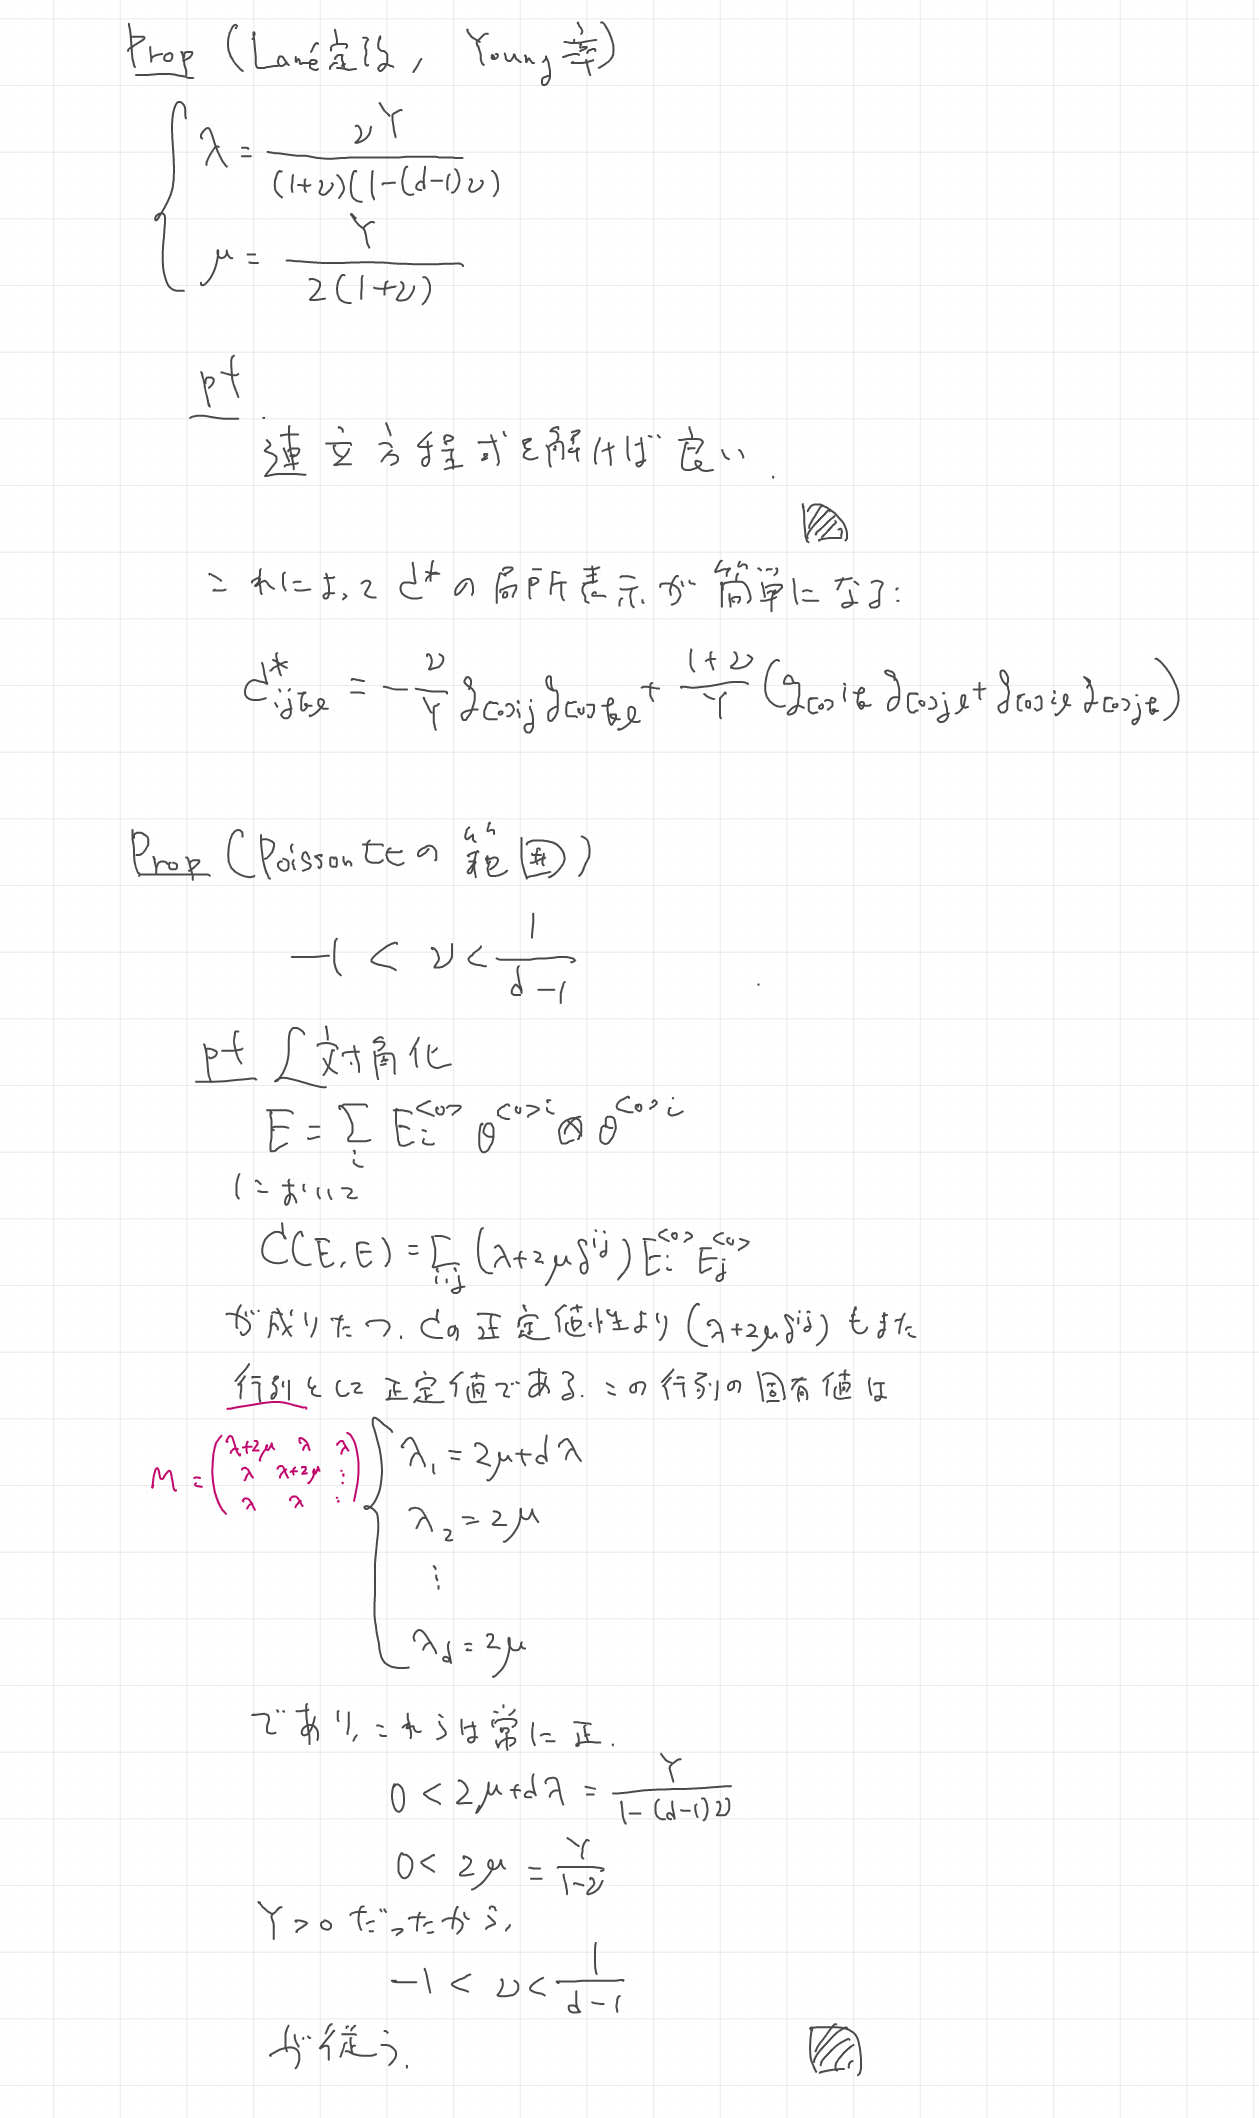 Prop (Lamé定数, Young率)
λ = νY / (1+ν)(1-(d-1)ν)
μ = Y / 2(1+ν)
pf.
連立方程式を解けば良い.
これによってC*の局所表示が簡単になる:
C*_{ijkl} = -ν/Y g_{[0]ij} g_{[0]kl} + (1+ν)/Y (g_{[0]ik} g_{[0]jl} + g_{[0]il} g_{[0]jk})
Prop (Poisson比の範囲)
-1 < ν < 1/(d-1)
pf 対角化
E = Σ_i E_i^{<0>} θ^{<0>i} ⊗ θ^{<0>i}
において
C(E,E) = Σ_{i,j} (λ+2μδ^{ij}) E_i^{<0>} E_j^{<0>}
が成りたつ. Cの正定値性より (λ+2μδ^{ij}) もまた
行列として正定値である. この行列の固有値は
M = (λ+2μ λ λ
λ λ+2μ ⋮
λ λ ⋮)
λ_1 = 2μ+dλ
λ_2 = 2μ
⋮
λ_d = 2μ
であり, これらは常に正.
0 < 2μ+dλ = Y / 1-(d-1)ν
0 < 2μ = Y / 1-ν
Y>0 だったから,
-1 < ν < 1/(d-1)
が従う.